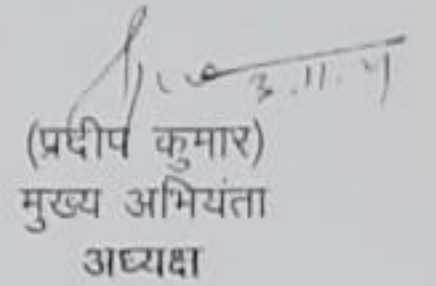 3.11.
(प्रदीप कुमार)
मुख्य अभियंता
अध्यक्ष